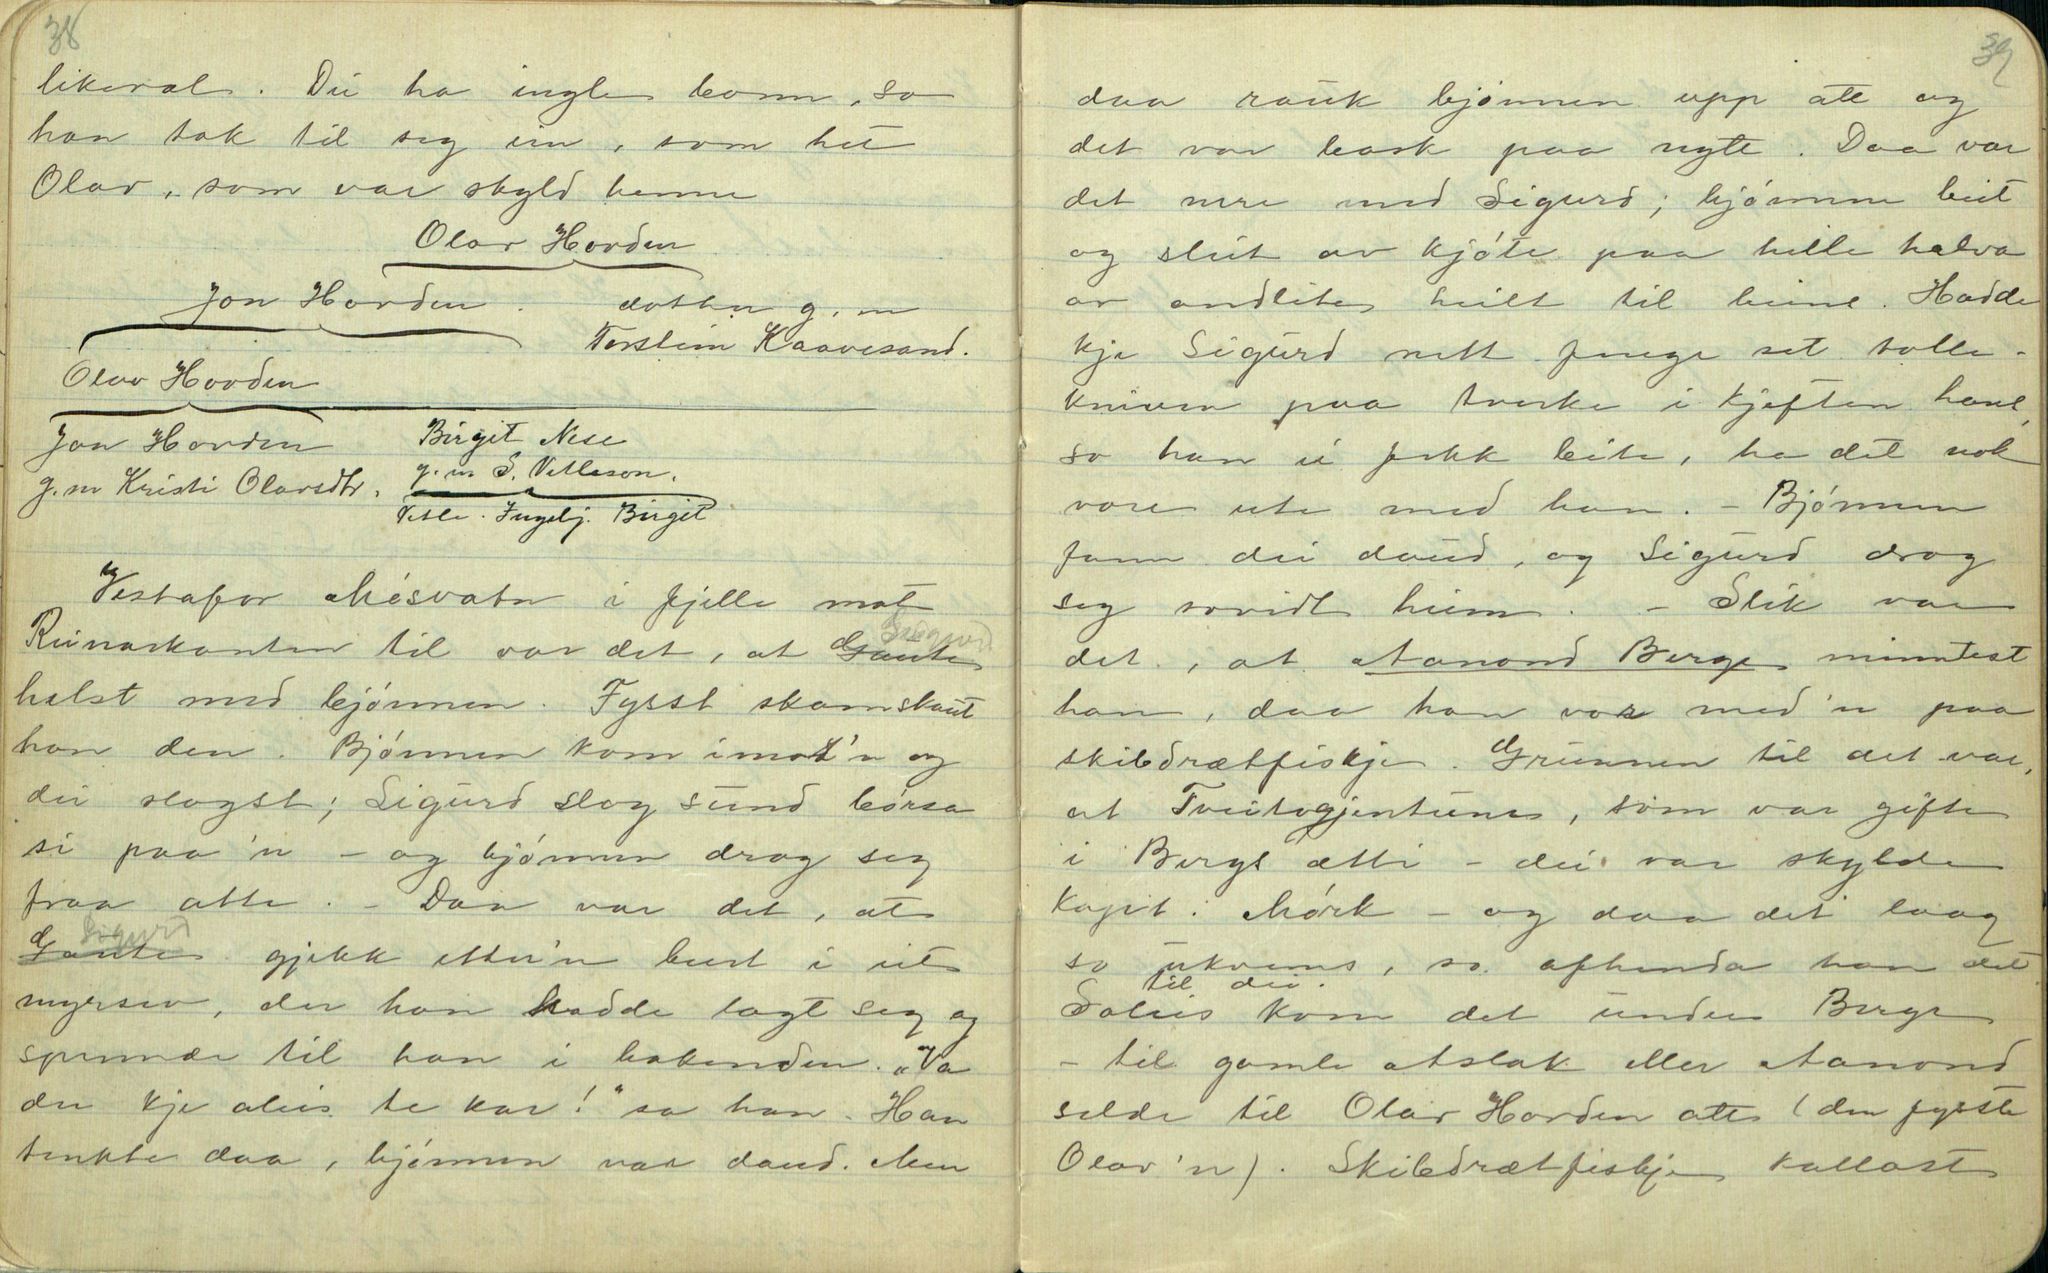 38
likeval. Dei ha ingle bonn, so
han tok til seg ein, som heit
Olav, som var skyld henne
Olav Hovden
Jon Hovden. dotter g. m
Torstein Kaavesand.
Olav Hovden
Jon Hovden Birgit Nese
g. m Kristi Olavsdtr. g. m S. Vetleson.
Vetle. Ingebj. Birgit
Vestafor Mjösvatn i fjelle mot
Reinarkanten til var det, at Gaute Sigurd
helst med bjönnen. Fysst skamskaut
han den. Bjönnen kom imot'n og
dei slogst; Sigurd slog sund börsa
si paa'n – og bjönnen drog seg
fraa atte. – Daa var det, at
Gaute Sigurd gjekk etter'n burt i eit
myrsev, der han hadde lagt seg og
spende til han i bakenden. „Va
du kje aleis te kar!" sa han. Han
tenkte daa, bjönnen var daud. Men
39
daa rauk bjönnen upp att og
det var bask paa nyte. Daa var
det nere med Sigurd; bjönnen beit
og sleit av kjöte paa heile halva
av andlite heilt til beine. Hadde
kje Sigurd nett fenge set tolle-
kniven paa tverke i kjeften hans,
so han ei fekk bite, ha det nok
vore ute med han. – Bjönnen
fann dei daud, og Sigurd drog
seg sovidt heim. – Slik var
det, at Aanond Berge minntest
han, daa han var med'n paa
skibdrætfiskje. Grunnen til det var,
at Tveitogjentune, som var gifte
i Bergs ætti – dei var skylde
Kapit. Mörk – og daa det laag
so ukvems, so afhenda han det
til dei.
Soleis kom det under Berge
– til gamle Aslak eller Aanond
selde til Olav Hovden att (den fysste
Olav'n). Skibdrætfiskje kallast